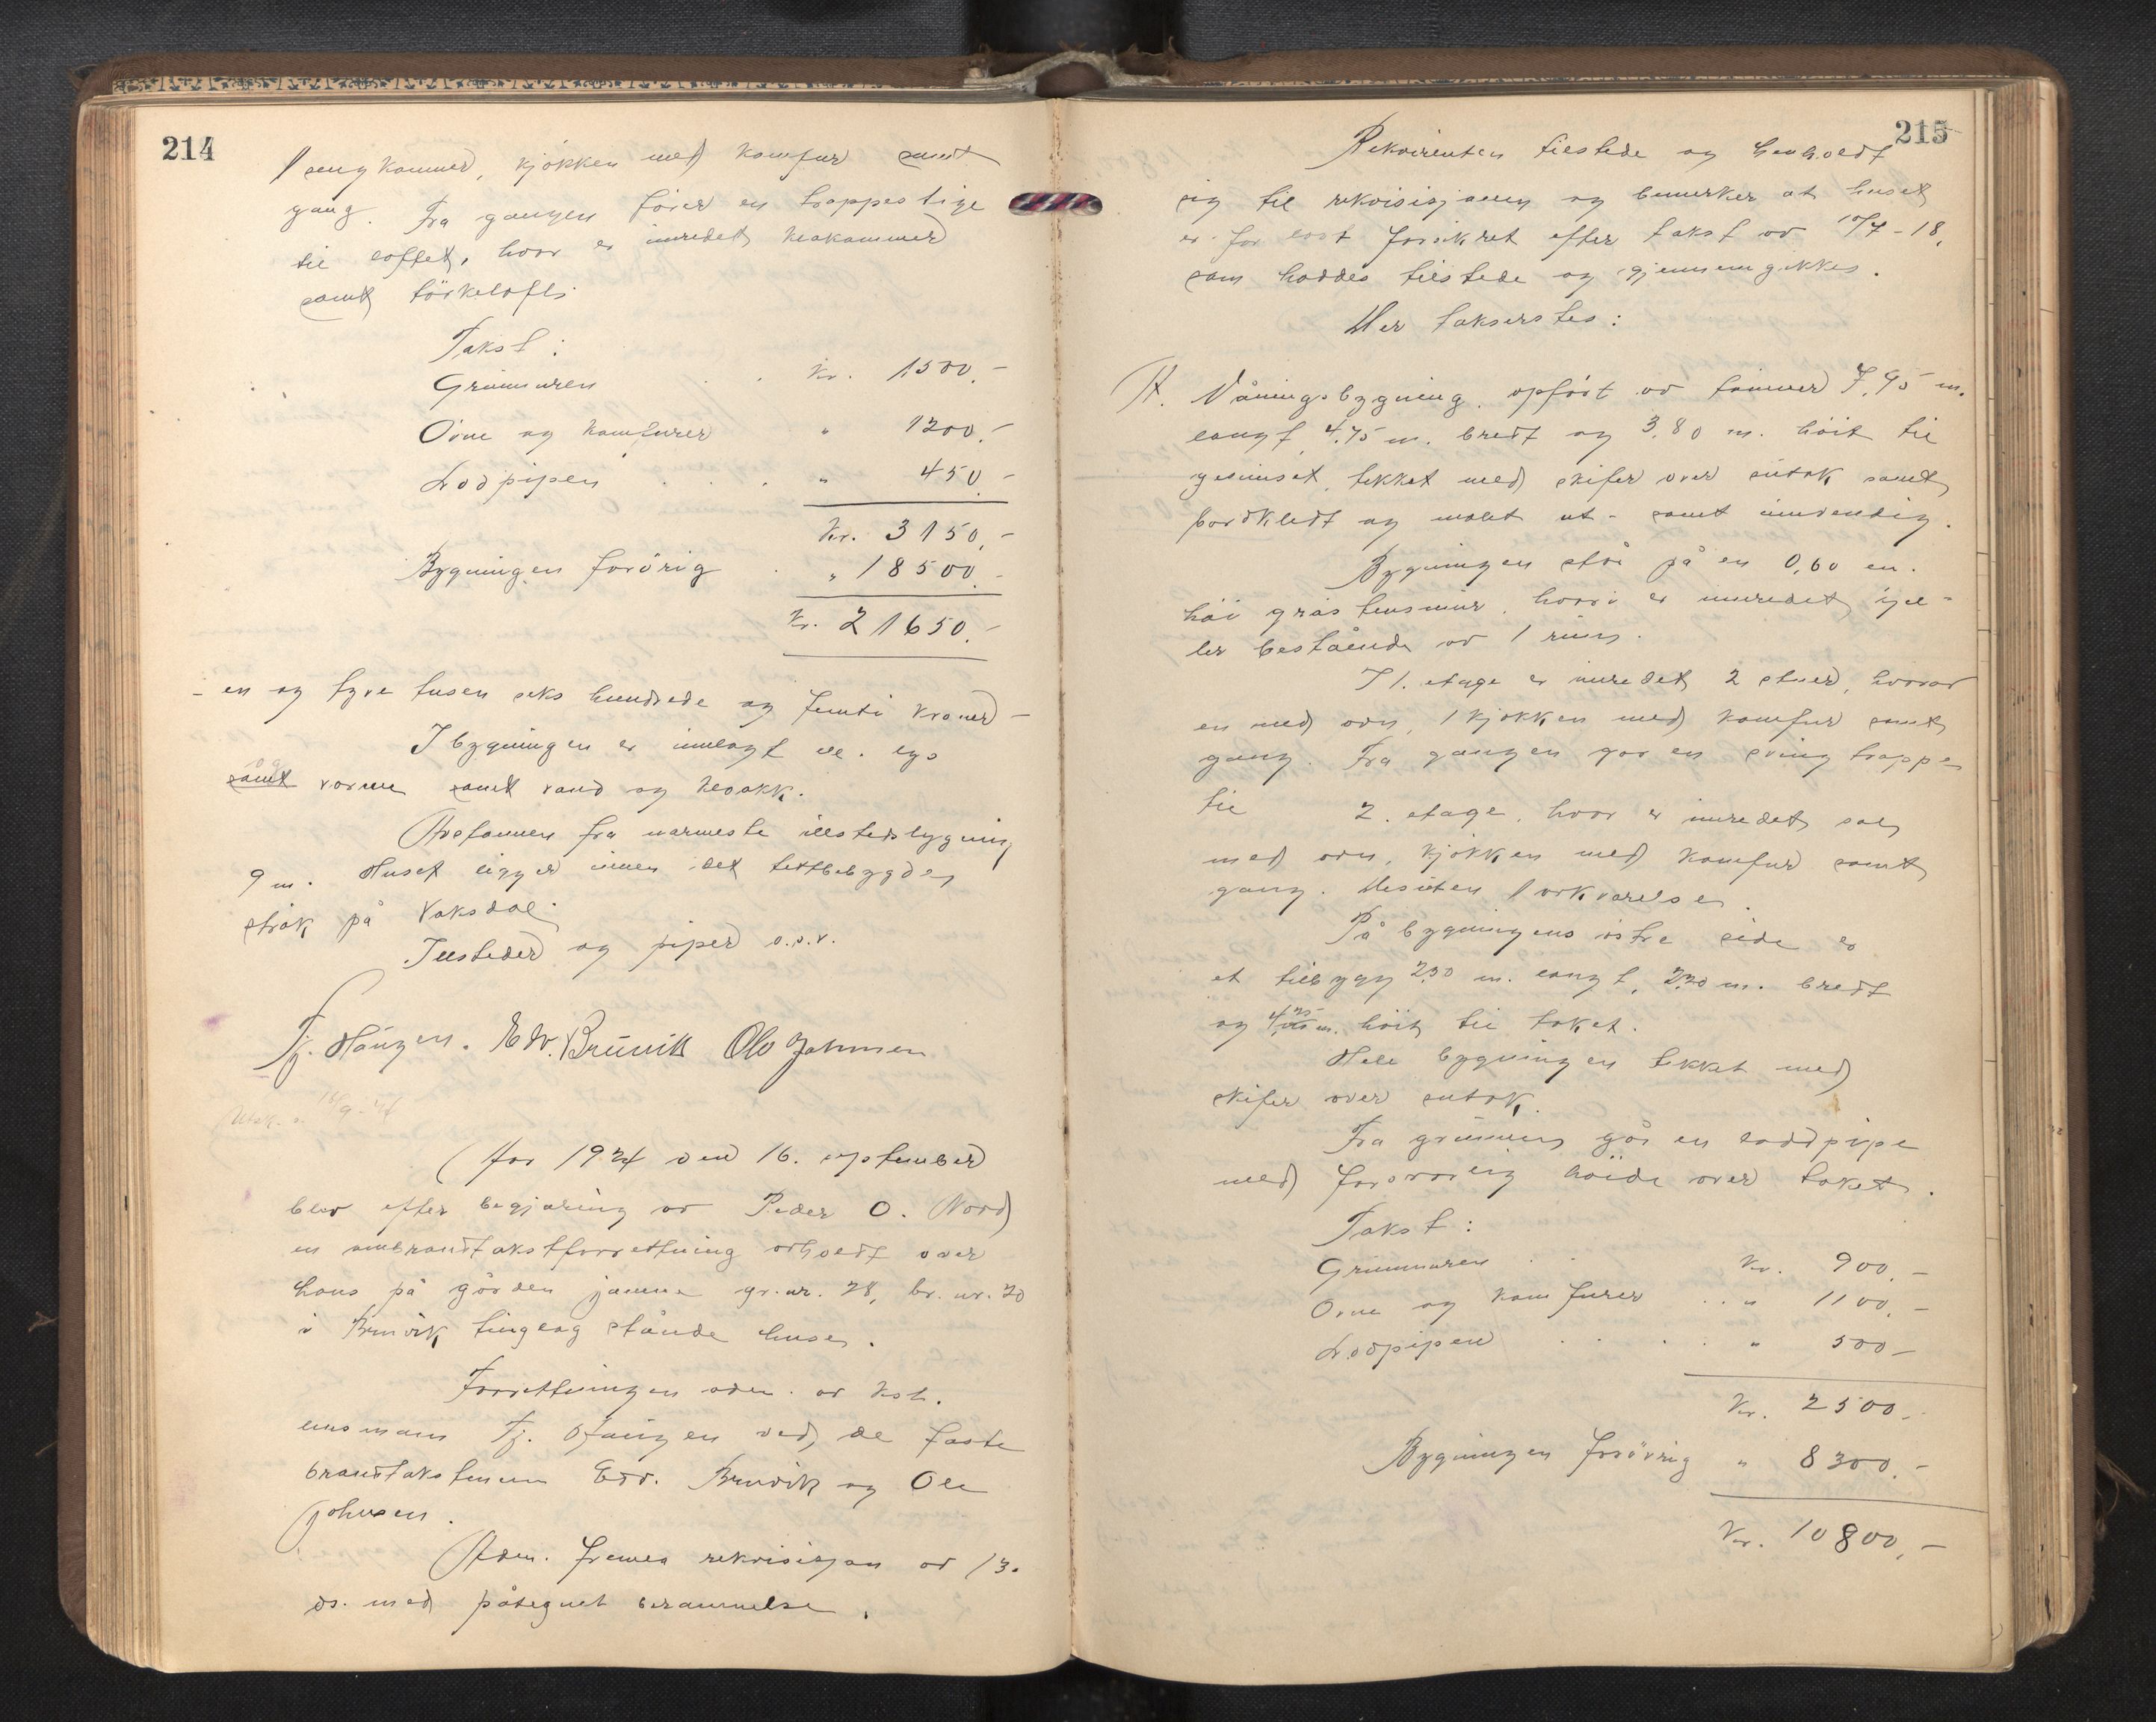 214
1 sengkammer, kjøkken med komfur samt
gang. Fra gangen fører en trappestige
til loftet, hvor er inredet
samt tørkeloft.
Takst:
Grunnuren . . kr. 1500.-
Ovne og komfurer " 1200.-
Lodpipen . . . " 450.-
Kr. 3150.-
Bygningen forøvrig . " 18500.-
Kr. 21650.-
- en og tyve tusen seks hundrede og femti kroner -
I bygningen er innlagt el. lys
og
samt varme samt vand og kloakk.
Avstannen fra nærmeste illstedsbygning
9 m. Huset ligger innen det tettbebygde
strøk på Vaksdal.
Illsteder og piper o.s.v.
Tj. Haugen. Edv. Bruvik Ole Johnsen
Utsk. s. 18/9-24
År 1924 den 16. september
blev efter begjæring av Peder O. Nord
en ombranntakstforretning avholdt over
hans på gården Jamne gr.nr. 28, br.nr. 20
i Bruvik tinglag stående hus.
Forretningen adm. av kst.
lensmann Tj. Haugen ved de faste
branntakstmenn Edv. Bruvik og Ole
Johnsen.
Adm. fremla rekvisisjon av 13.
ds. med påtegnet berammelse.
215
Rekvirenten tilstede og henholdt
sig til rekvisisjonen og bemerker at huset
er før forsikret efter takst av 10/7-18,
som haddes tilstede og gjennemgikkes.
Her takserstes:
A. Våningsbygning, opført av tømmer 7,95 m.
langt, 4,75 m. bredt og 3,80 m. høit til
gesimset, tekket med skifer over sutak samt
bordkledt og malt ut- samt innvendig.
Bygningen står på en 0,60 m.
høi gråstensmur, hvori er innredet kjel-
ler bestående av 1 rum.
I 1. etage er innredet 2 stuer, hvorav
en med ovn, 1 kjøkken med komfur samt
gang. Fra gangen går en svingtrapp
til 2. etage, hvor er innredet sal
med ovn, kjøkken med komfur samt
gang. Desuten 1 arkværelse.
På bygningens østre side er
et tilbygg 2,30 m. langt, 2,20 m. bredt
og 4, m. høit til taket.
Hele bygningen tekket med
skifer over sutak.
Fra grunnen går en loddpipe
med forsvarlig høide over taket.
Takst:
Grunnmuren . . Kr. 900.-
Ovne og komfurer . . " 1100.-
Lodpipen . . . " 500-
Kr. 2500.-
Bygningen forøvrig " 8300.-
Kr. 10800.-